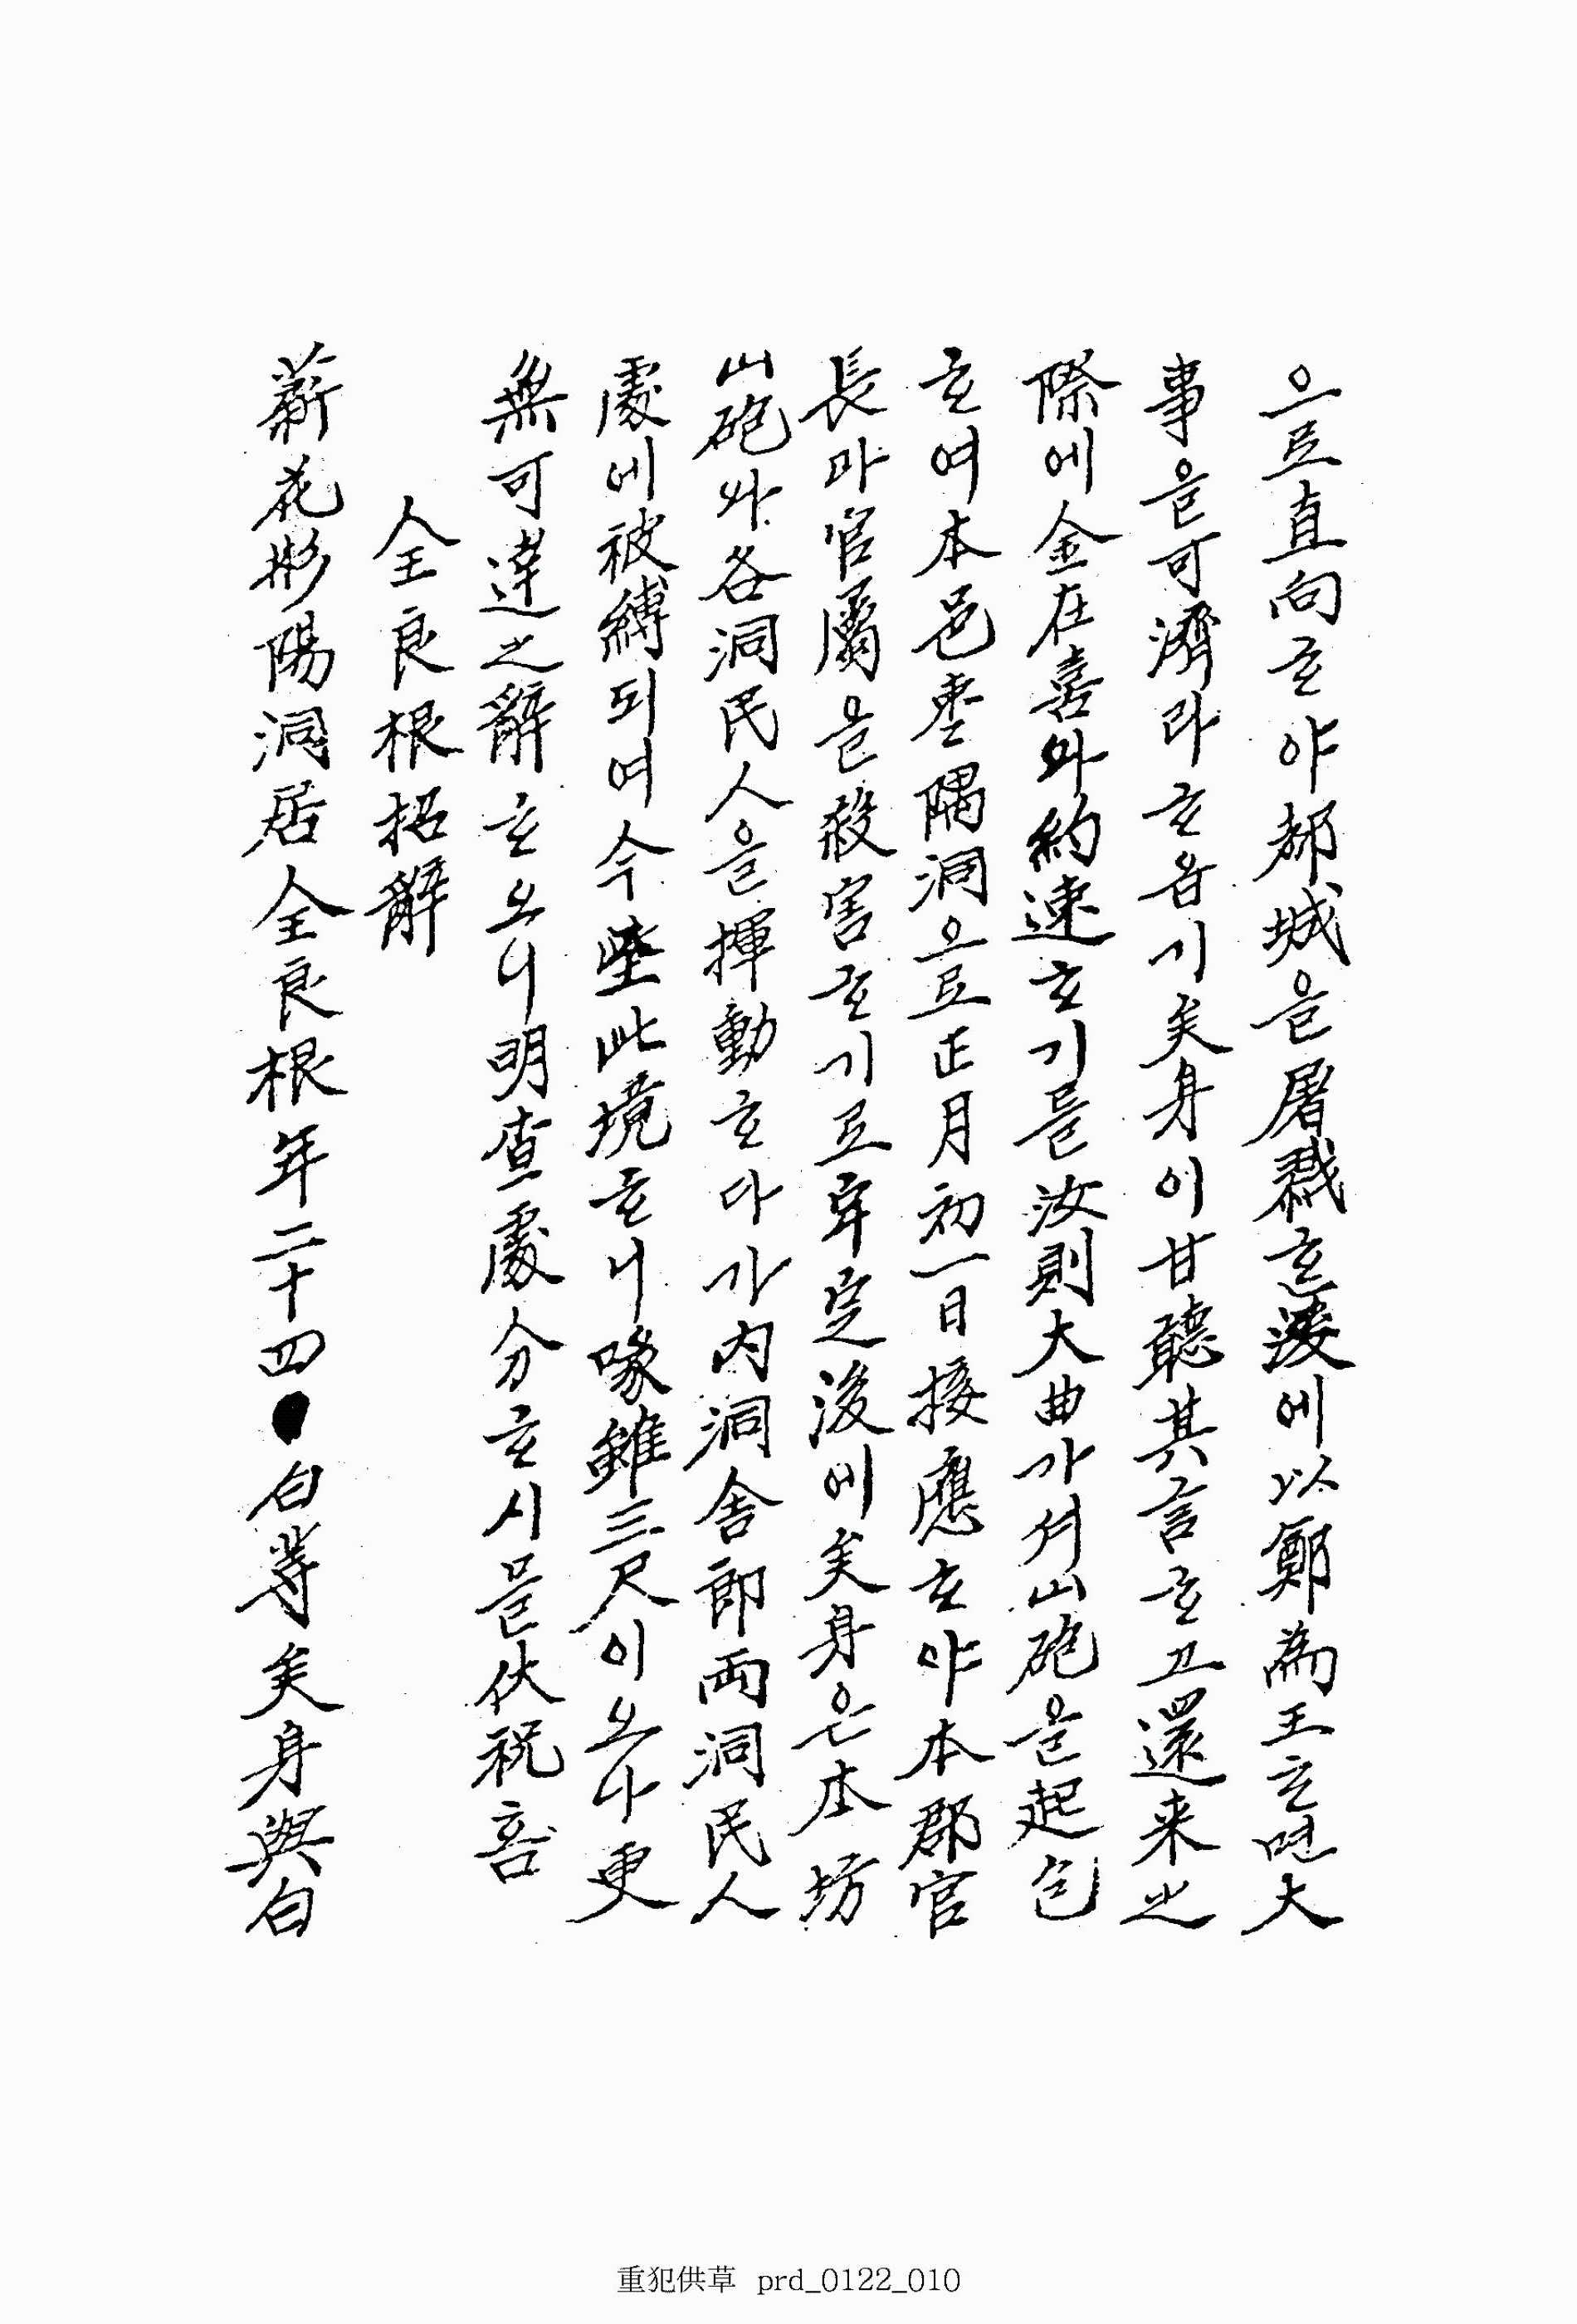 으로直向ᄒᆞ야都城을屠戮ᄒᆞᆫ後에以鄭爲王ᄒᆞ면大
事을可濟라ᄒᆞ옵기矣身이甘聽其言ᄒᆞ고還来之
際에金在喜와約速ᄒᆞ기를汝則大曲가셔山砲을起包
ᄒᆞ여本邑東隅洞으로正月初一日接應ᄒᆞ야本郡官
長과官屬을殺害ᄒᆞ기로牢定後에矣身은本坊
山砲와各洞民人을揮動ᄒᆞ다가內洞舍郎両洞民人
處에被縛되여今墮此境ᄒᆞ니喙雖三尺이오나更
無可達之辭ᄒᆞ오니明査處分ᄒᆞ시믈伏祝
全良根招辭
薪花彬陽洞居全良根年二十四白等矣身與白
重犯供草 prd_0122_010